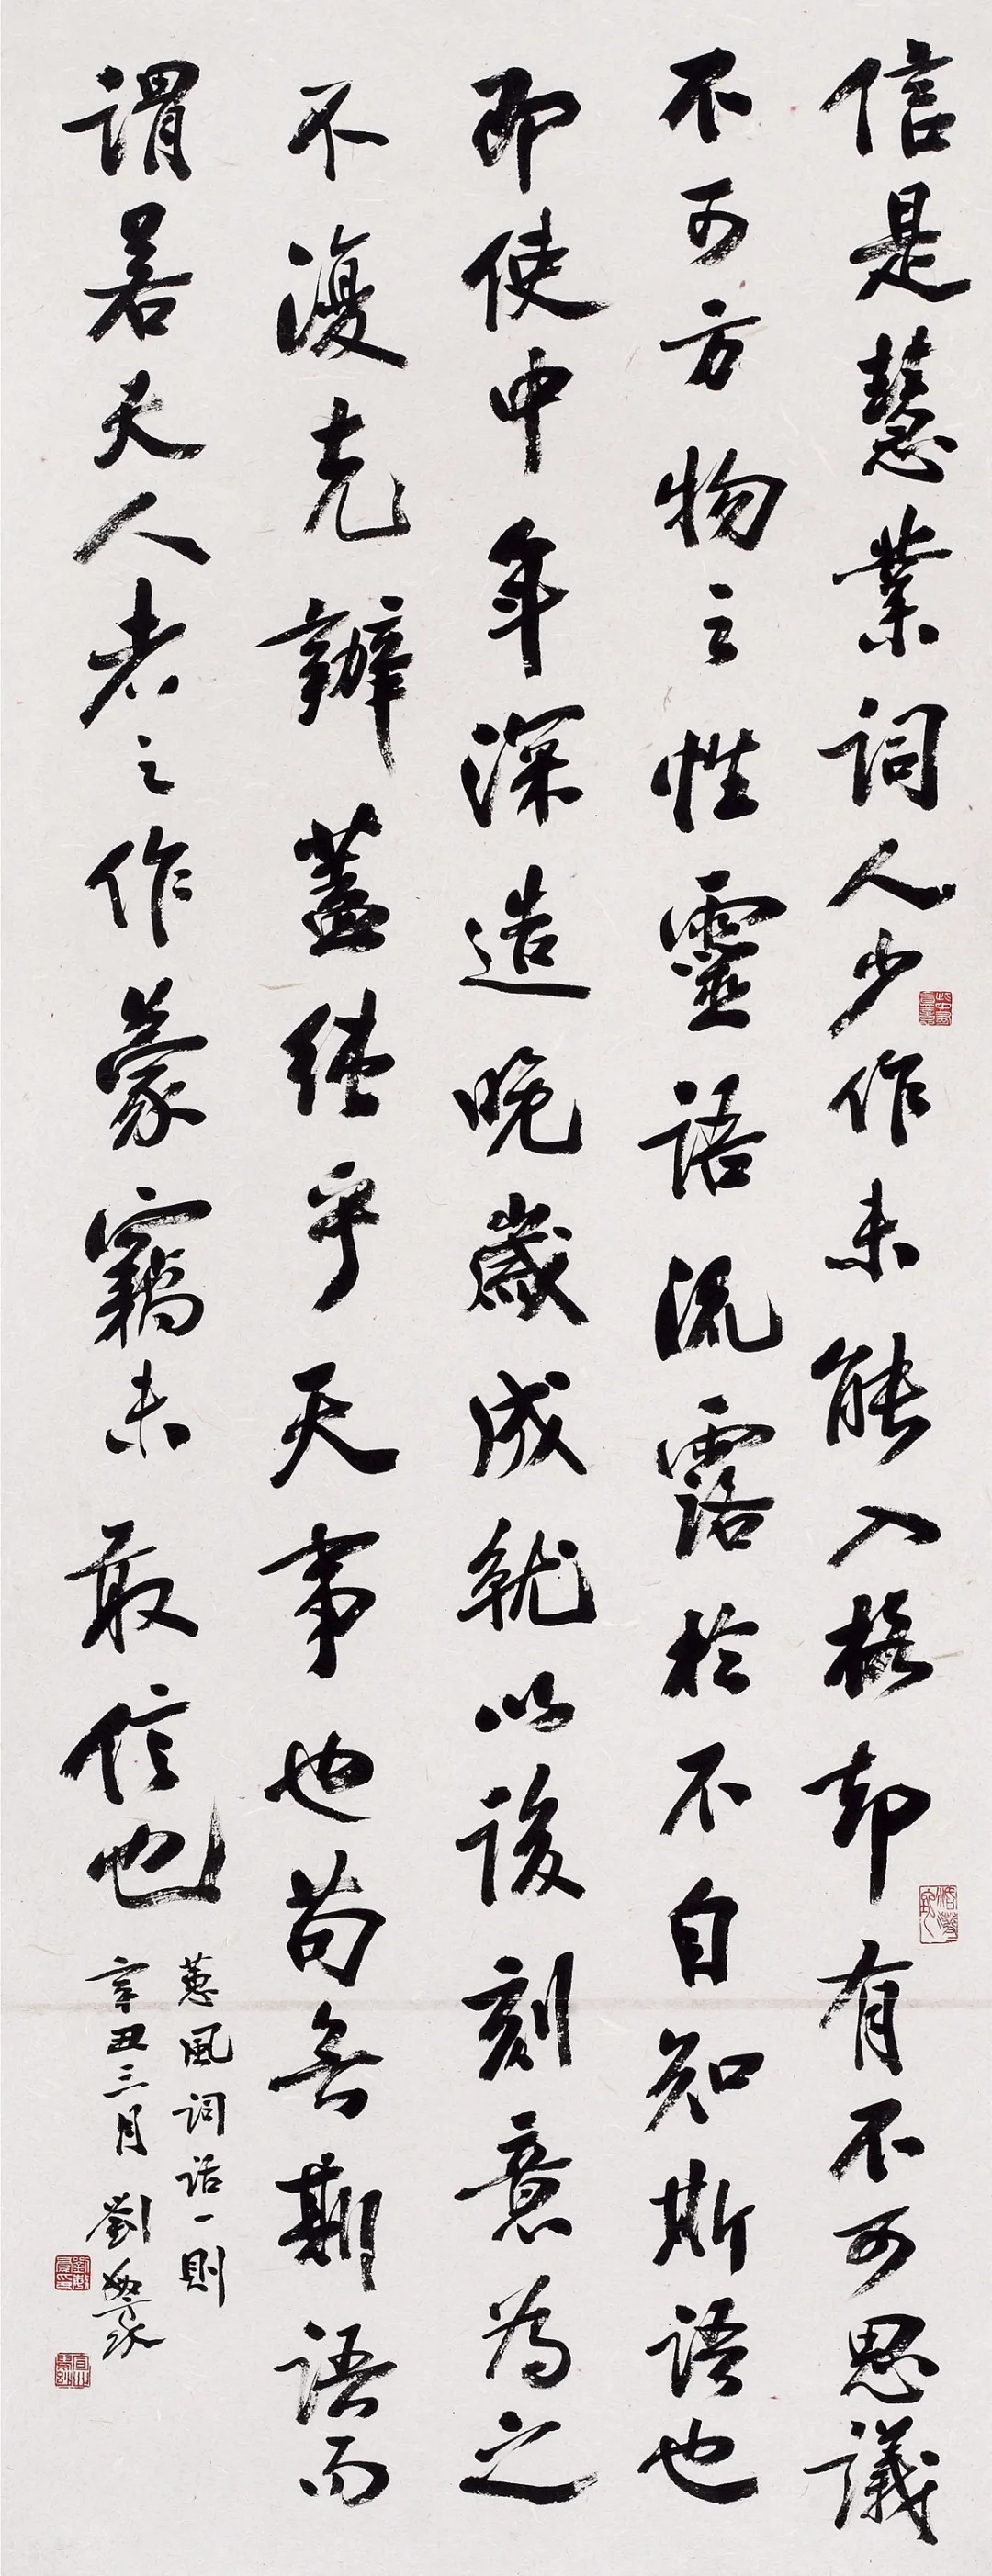 信是慧業詞人少作未能入格却有不可思議
不可方物之性靈語流露於不自知斯語也
即使中年深造晚歲成就以後刻意為之
不復克辦蓋純乎天事也苟無斯語而
謂若天人者之作蒙竊未敢信也
蕙風詞話一則
辛丑三月 劉